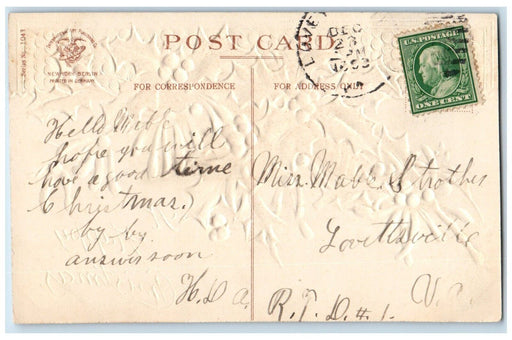 Series No. 1041
POST CARD
NEW-YORK BERLIN
PRINTED IN GERMANY
FOR CORRESPONDENCE
FOR ADDRESS ONLY
DEC
23
PM
U.S. POSTAGE
ONE CENT
Hello Mable
hope you will
have a good time
Christmas.
by by
answer soon
H. D. A.
Miss Mable Strother
Lovettsville
R.F.D. #1. Va.